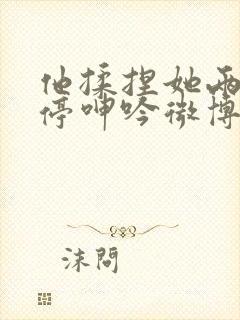 他揉捏她两
停呻吟微博
沫问